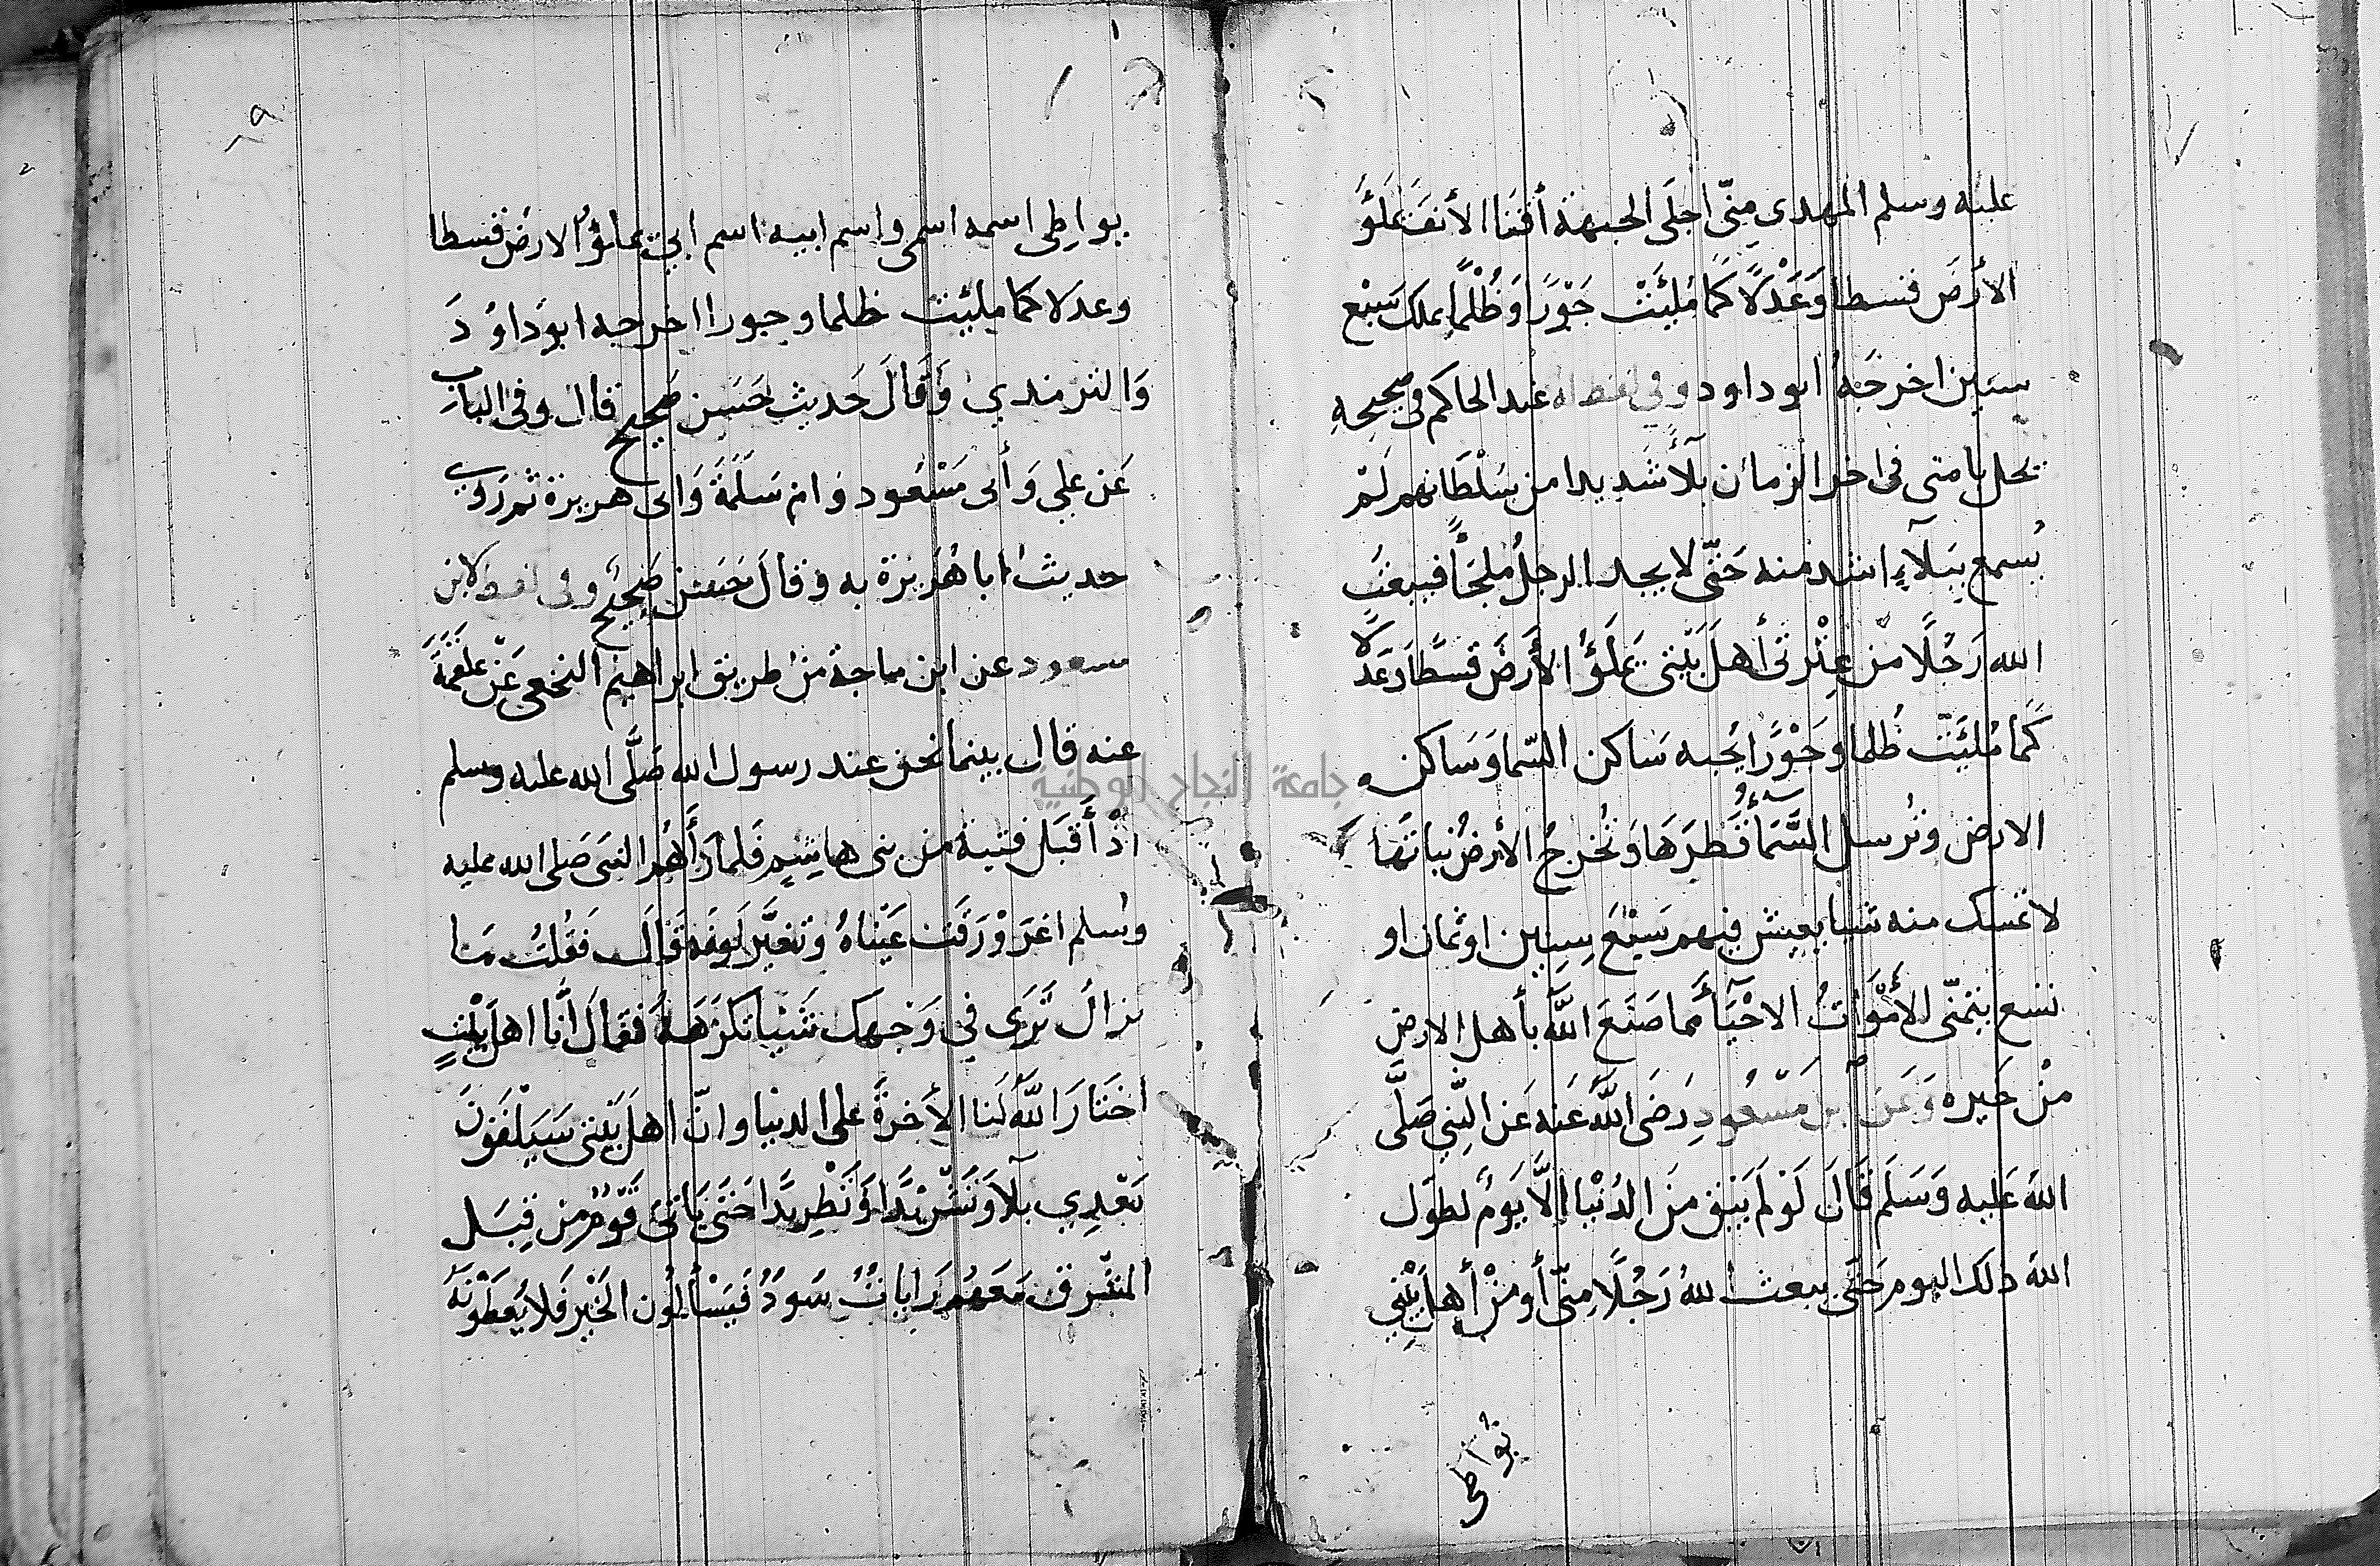 عليه وسلم المهدى مِنّى اجلَى الجبهة أقنَا الأنفَ يملَؤُ
الأرضَ قسطا وَعَدْلاً كَما مُلِئَتْ جَوْرًا وَظُلْمًا يملك سَبْع
سنين اخرجَهُ ابو داود وفى لفظ له عند الحاكم فى صحيحِهِ
يحل بامتى فى اخر الزمان بلآءٌ شديدا من سُلْطَانهم لَمْ
يُسمع ببلآءٍ اشد منه حَتّى لا يجد الرجلُ ملجَأً فيبعَث
الله رَجُلًا من عِتْرتى أهلَ بَيْتى يملَؤُ الأرضَ قسطًا وَعَدْلاً
كَما مُلِئَتْ ظُلما وجَوْرًا يُحبه سَاكن السّما وَسَاكن
الارض وتُرسل السَّمَآءُ قَطرَهَا وَتُخرجُ الأرضُ نباتَها
لا تمسك منه شيا يعيش فيهم سَبْعَ سِنِين او ثمان او
تسع يتمنّى الأَمْوَاتُ الاحْيَآءَ مما صَنَعَ اللَّه بأهل الارض
مِنْ خَيره وَعَن ابن مَسْعُودِ رَضىَ اللَّه عَنه عَن النّبي صَلَّى
اللهَ عَليه وَسَلَم قَالَ لَوْ لَم يَبْق مِنَ الدُنْيَا إلَّا يَومٌ لَطوَل
اللهَ ذلك اليوم حَتّى يبعث اللهُ رَجُلًا مِنّى أو مِنْ أهل بَيْتِي
يواطى
يواطِى اسمه اسمى واسم ابيه اسم ابى يملؤُ الارضَ قسطا
وعدلا كما ملئت ظلما وجورا اخرجه ابو دَاوُدَ
وَالترمذي وَقَالَ حَديث حَسَن صَحيح قال وفى الباب
عَن علي وَأبى مَسْعُود وَام سَلَمَةَ وَابى هريرة ثم رَوى
حديث ابا هُرَيرَة به وَقَالَ حَسَن صَحيحٌ وفى لفظ لابن
مسعود عن ابن ماجة من طريق ابراهيم النخعى عَنْ علقَمَةَ
عنه قال بينما نحن عند رسول الله صَلَّى الله عليه وسلم
اذْ أَقبَل فتية من بنى هاشِمٍ فَلما رَأَهُم النبىَ صَلى الله عليه
وسُلم اغرَوْرَقَت عَيْنَاهُ وَتغيَّر لَونَهُ قَال فَقُلتُ مَا
نزالُ نَرَى في وَجهِك شَيْيا تكرَههُ فَقالَ أنَا اهل بَيْتٍ
اختَارَ اللَّهُ لَنا الأخرةَ على الدنيا وانّ اهلَ بَيْتى سَيَلْقَونَ
بَعْدِي بلآءً وَتَشْرِيْدًا وَتَطْرِيدًا حَتى يَاتىَ قَوْمٌ من قِبَل
المشرق مَعَهُم رَايَاتٌ سَودٌ فَيَسْألُون الخَيْر فَلا يُعطَونَهُ
جامعة النجاح الوطنية